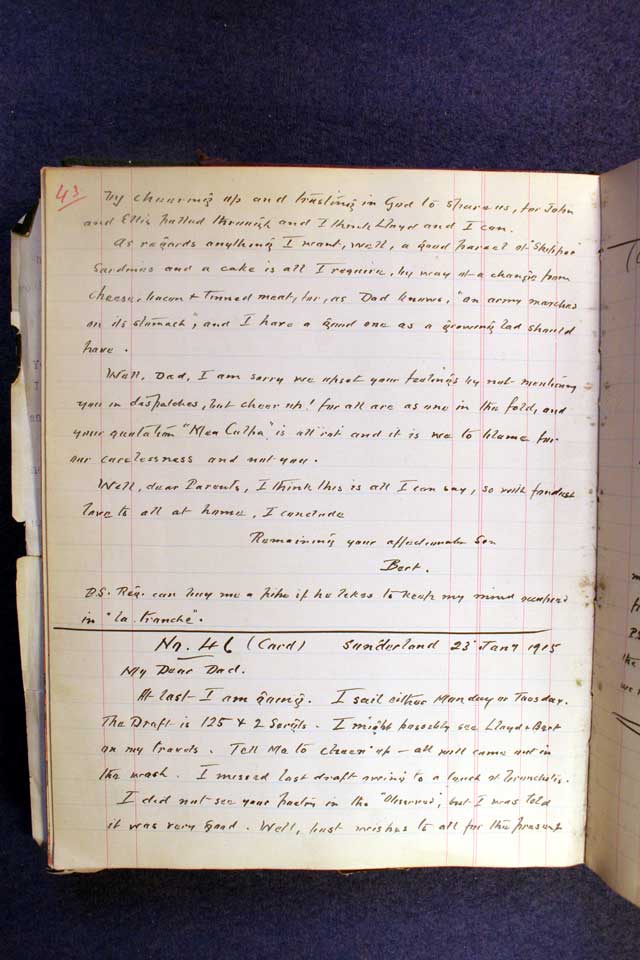 43
by cheering up and trusting in God to spare us, for John
and Ellis pulled through and I think Lloyd and I can.
As regards anything I want, well, a good parcel of "Skipper"
Sardines and a cake is all I require, by way of a change from
cheese, bacon & tinned meat, for, as Dad knows, "an army marches
on its stomach", and I have a good one as a growing lad should
have.
Well, Dad, I am sorry we upset your feelings by not mentioning
you in despatches, but cheer up! for all are as one in the fold, and
your quotation "Mea Culpa" is all rot and it is we to blame for
our carelessness and not you.
Well, dear Parents, I think this is all I can say, so with fondest
love to all at home, I conclude
Remaining your affectionate Son
Bert.
P.S. Reg. can buy me a pipe if he likes to keep my mind occupied
in "la tranche".
No. 46 (Card) Sunderland 23 Jany 1915
My Dear Dad.
At last I am going. I sail either Monday or Tuesday.
The Draft is 125 & 2 Sergts. I might possibly see Lloyd & Bert
on my travels. Tell Ma to cheer up - all will come out in
the wash. I missed last draft owing to a touch of bronchitis.
I did not see your in the "Observer", but I was told
it was very good. Well, best wishes to all for the present